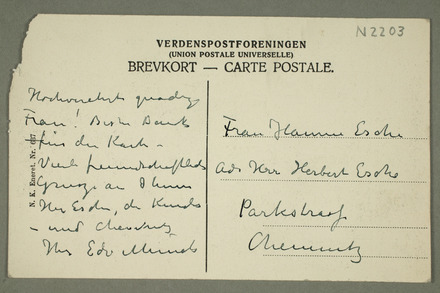 N 2203
VERDENSPOSTFORENINGEN
(UNION POSTALE UNIVERSELLE)
BREVKORT — CARTE POSTALE.
Hochverehrte gnädige
Frau! Besten Dank
für die Karte –
Viele freundschaftliche
Grüsse an Ihnen
Herr Esche, die Kinder
– und Chemnitz
Ihr Edv Munch
Frau Hanni Esche
Adr Herr Herbert Esche
Parkstrasse
Chemnitz
N. K. Eneret. Nr.